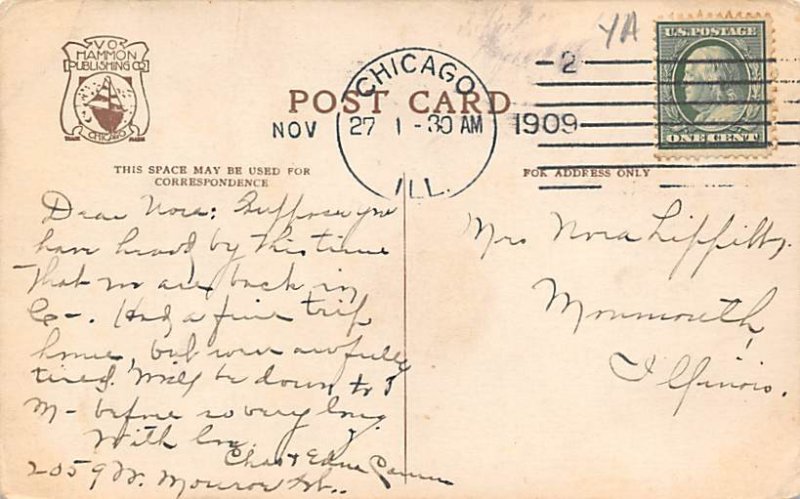 YA
V.O.
HAMMON
PUBLISHING CO
CHICAGO
TRADE MARK
POST CARD
CHICAGO
NOV 27 1-30 AM 1909
ILL.
2
U.S. POSTAGE
ONE CENT
THIS SPACE MAY BE USED FOR
CORRESPONDENCE
FOR ADDRESS ONLY
Dear Nora: Suppose you
have heard by this time
that we are back in
C-. Had a fine trip
home, but were awfully
tired. Will be down to
M- before so very long.
With love.
Chas & Edna
2059 W. Monroe St.
Mrs Nora Lippitt,
Monmouth,
Illinois.